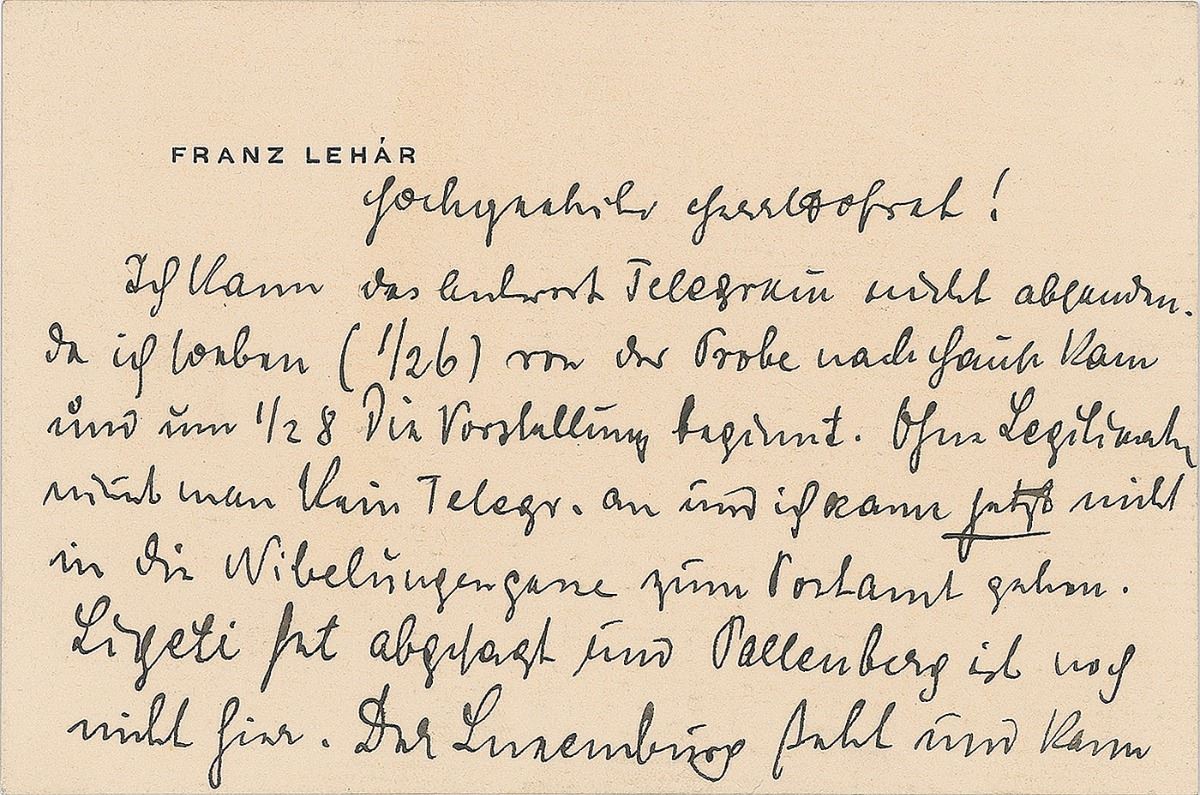 FRANZ LEHÁR
Hochgeehrter Herr Hofrat!
Ich kann das Antwort Telegramm nicht absenden.
da ich soeben (1/26) von der Probe nach Hause kam
und um 1/2 8 Die Vorstellung beginnt. Ohne Legitimation
nimt man kein Telegr. an und ich kann jetzt nicht
in die Nibelungengasse zum Postamt gehen.
Ligeti hat abgesagt und Pallenberg ist noch
nicht hier. Der Luxemburg steht und kann